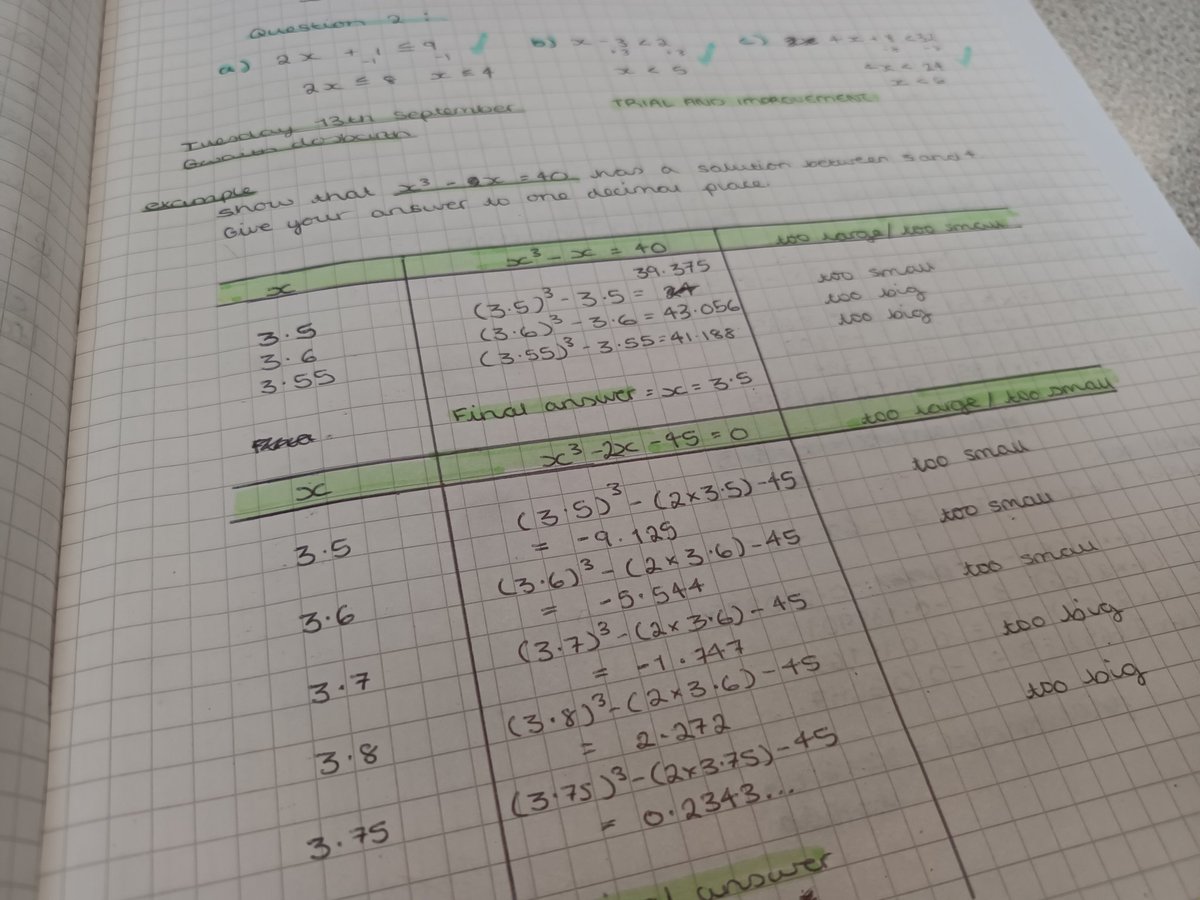 Question 2:
a) 2x + 1 ≤ 9
-1 -1
2x ≤ 8 x ≤ 4
b) x - 3 < 2
+3 +3
x < 5
c) + x + 8 < 32
x < 24
x < 8
Tuesday 13th September
Gwaith dosbarth
TRIAL AND IMPROVEMENT
example
show that x³ - x = 40 has a solution between 3 and 4
Give your answer to one decimal place.
x x³ - x = 40 too large / too small
39.375
3.5 (3.5)³ - 3.5 = too small
3.6 (3.6)³ - 3.6 = 43.056 too big
3.55 (3.55)³ - 3.55 = 41.188 too big
Final answer = x = 3.5
x x³ - 2x - 45 = 0 too large / too small
3.5 (3.5)³ - (2 x 3.5) - 45 too small
= -9.125
3.6 (3.6)³ - (2 x 3.6) - 45 too small
= -5.544
3.7 (3.7)³ - (2 x 3.6) - 45 too small
= -1.747
3.8 (3.8)³ - (2 x 3.6) - 45 too big
= 2.272
3.75 (3.75)³ - (2 x 3.75) - 45 too big
= 0.2343...
answer